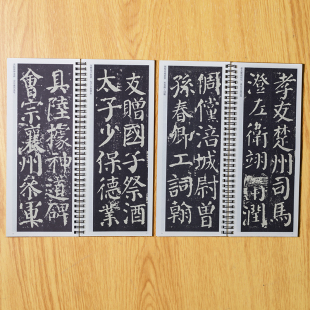 友贈國子祭酒
太子少保德業
具陸據神道碑
會宗襄州參軍
孝友楚州司馬
澄左衛翊衛潤
倜儻涪城尉曾
孫春卿工詞翰